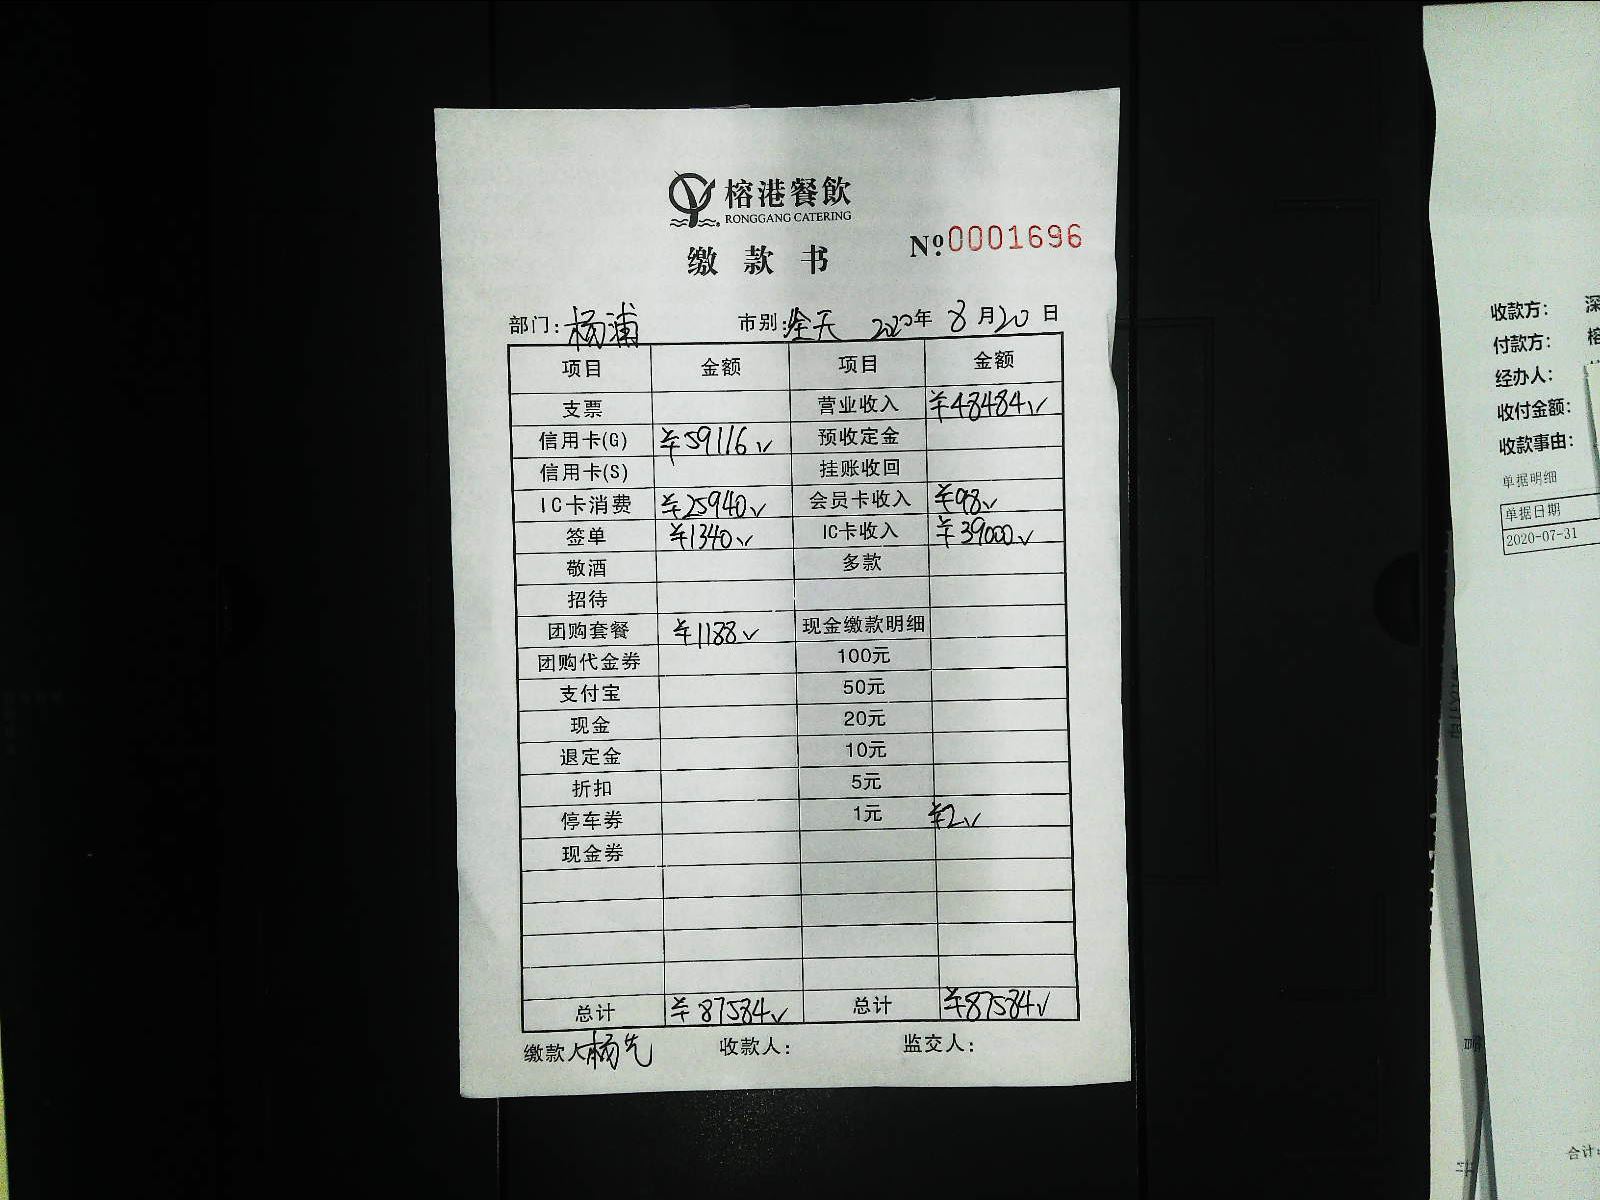 榕港餐飲
RONGGANG CATERING
缴款书
Nº:0001696
部门:杨浦 市别:全天 2020年8月20日
项目 金额 项目 金额
支票 营业收入 ¥48484√
信用卡(G) ¥59116√ 预收定金
信用卡(S) 挂账收回
IC卡消费 ¥25940√ 会员卡收入 ¥98√
签单 ¥1340√ IC卡收入 ¥39000√
敬酒 多款
招待
团购套餐 ¥1188√ 现金缴款明细
团购代金券 100元
支付宝 50元
现金 20元
退定金 10元
折扣 5元
停车券 1元 ¥2√
现金券
总计 ¥87584√ 总计 ¥87584√
缴款人 杨先 收款人: 监交人:
收款方: 深
付款方: 榕
经办人:
收付金额:
收款事由:
单据明细
单据日期
2020-07-31
合计: